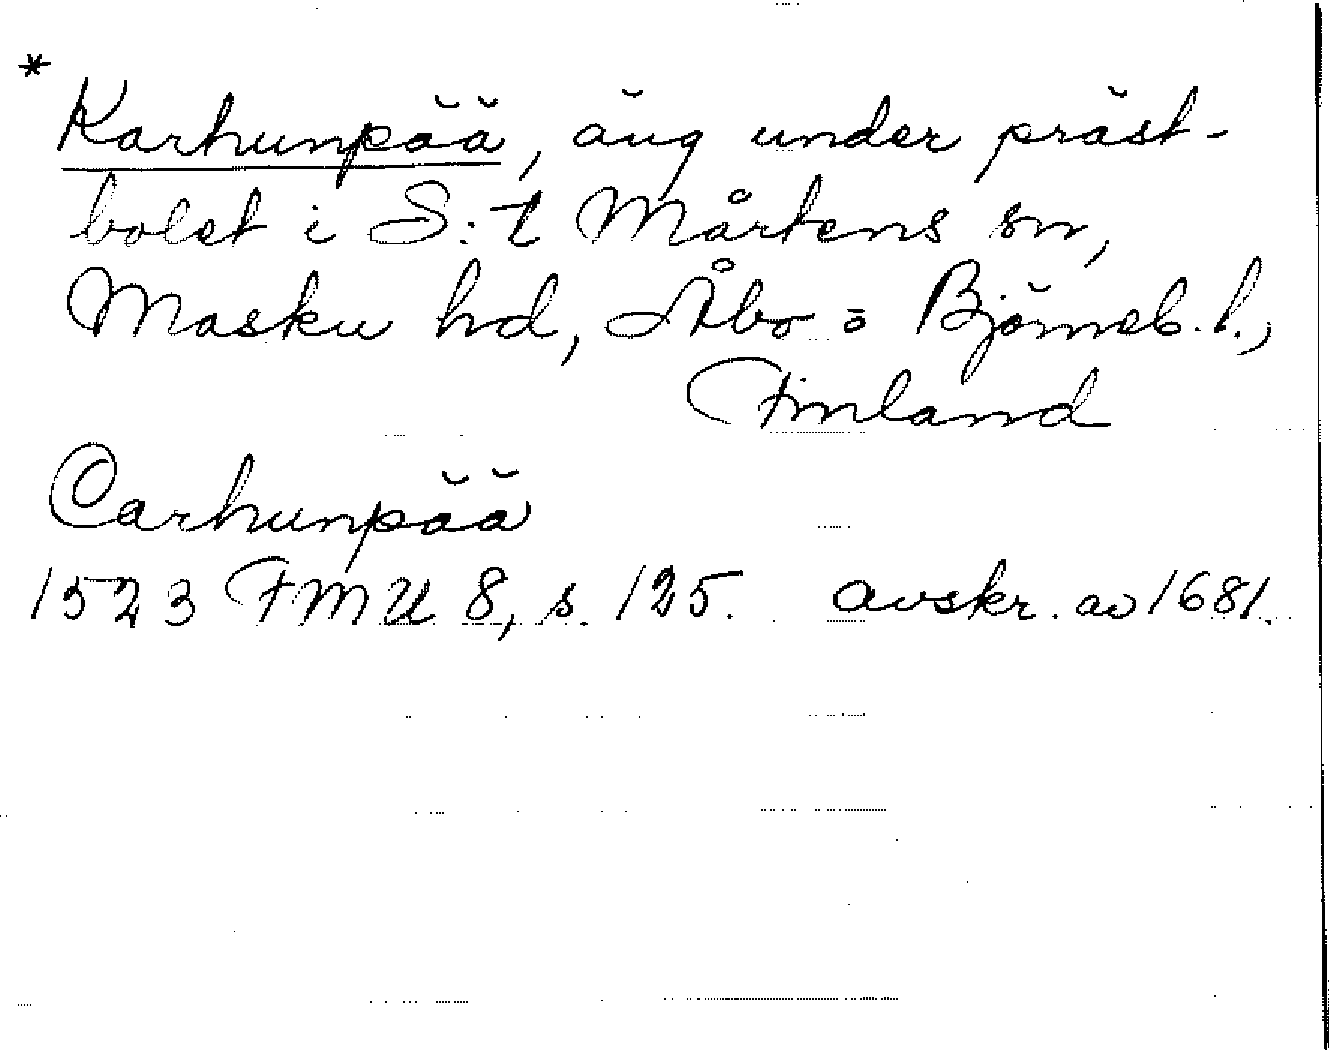 *
Karhunpää, äng under präst-
bolet i S:t Mårtens sn,
Masku hd, Åbo o Björneb. l.,
Finland
Carhunpää
1523 FMU 8, s. 125. avskr. av 1681.